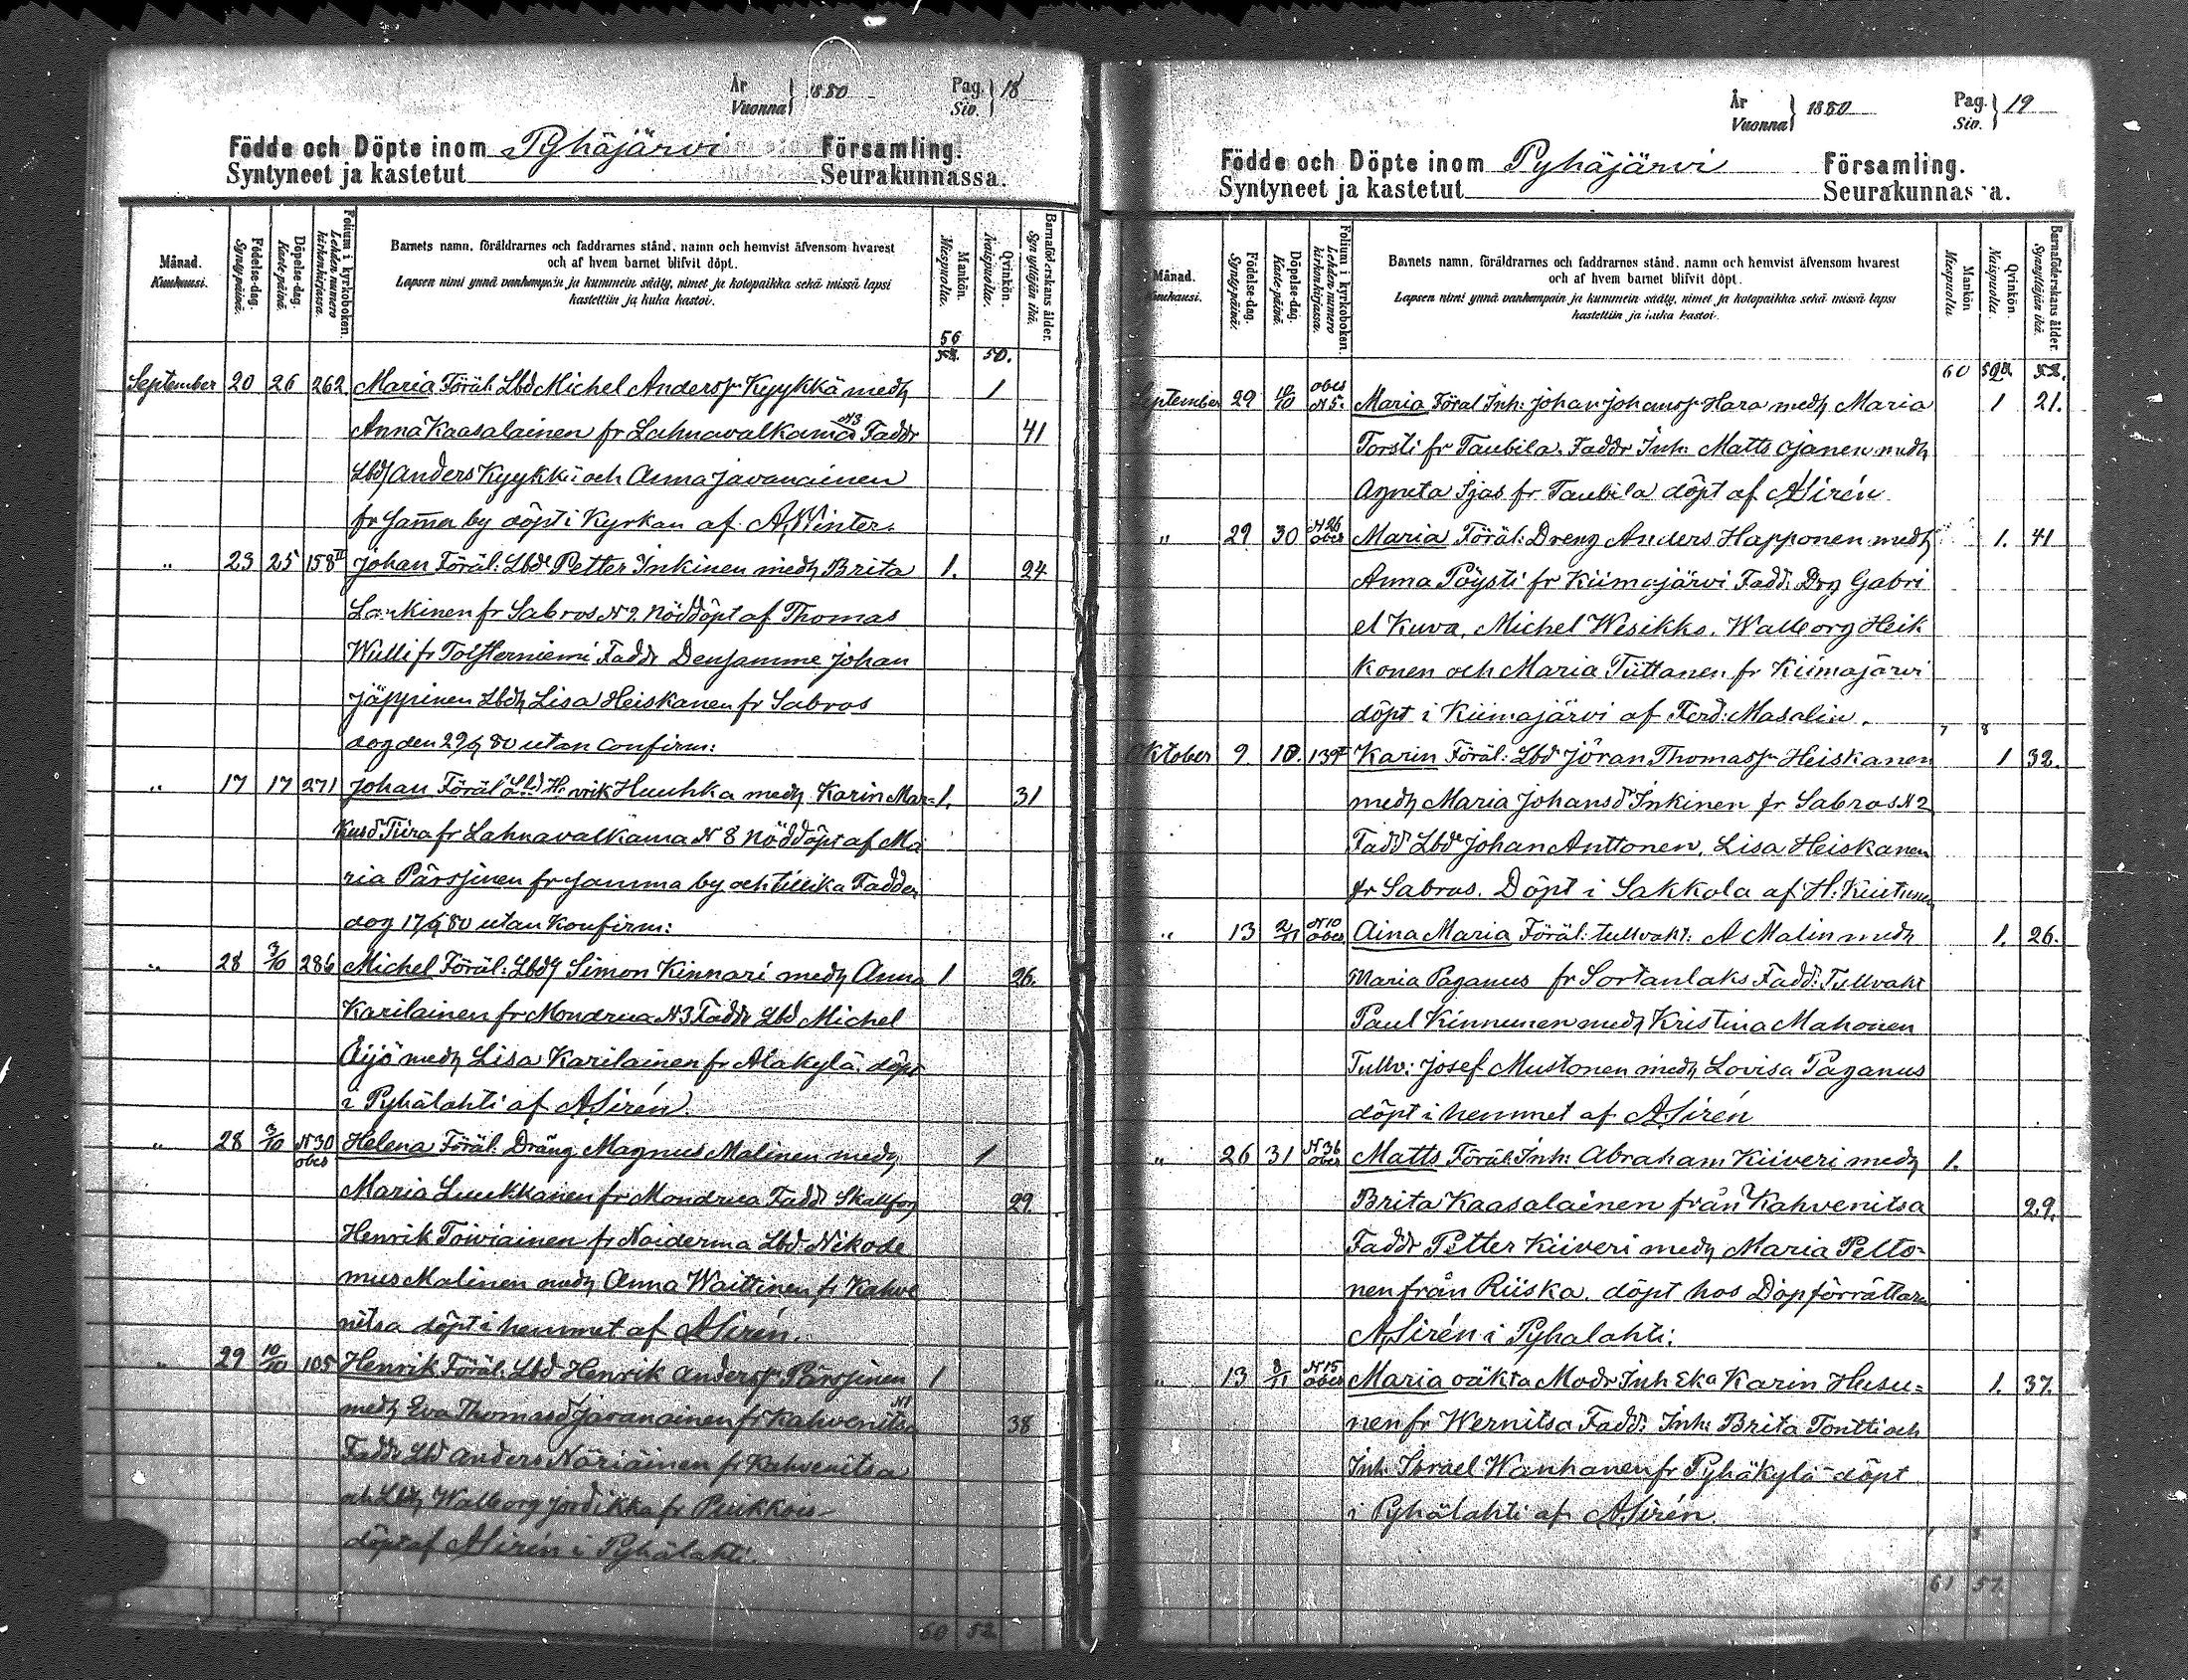 År
Vuonna } 1880
Pag.
Siv. } 18
Födde och Döpte inom Pyhäjärvi Församling.
Syntyneet ja kastetut Seurakunnassa.
Månad.
Kuukausi.
Födelse-dag.
Synty-päivä.
Döpelse-dag.
Kaste-päivä.
Folium i kyrkoboken.
Lehden numero kirkonkirjassa.
Barnets namn, föräldrarnes och faddrarnes stånd, namn och hemvist äfvensom hvarest
och af hvem barnet blifvit döpt.
Lapsen nimi ynnä vanhempain ja kummein sääty, nimet ja kotopaikka sekä missä lapsi
kastettiin ja kuka kastoi.
Mankön.
Miespuolia.
Qvinkön.
Naispuolia.
Barnaföderskans ålder.
Synnyttäjän ikä.
56
50.
September 20 26 262 Maria Föräl: Lbd Michel Anderss: Kyykkä medh 1
Anna Kaasalainen fr Lahnavalkama N3 Faddr 41
Lbd Anders Kyykkä och Anna Javanainen
fr samma by döpt i Kyrkan af A. Winter.
" 23 25 158 II Johan Föräl: Lbd Petter Inkinen medh Brita 1. 24
Lankinen fr Sabros N2. Nöddöpt af Thomas
Wulli fr Tolsterniemi Faddr Densamme Johan
Jäppinen Lbdh Lisa Heiskanen fr Sabros
dog den 29/9 80 utan Confirm:
" 17 17 271 Johan Föräl: Lbd Henrik Huuhka medh Karin Mar= 1. 31
kusd Tiira fr Lahnavalkama N 8 Nöddöpt af Ma
ria Pärssinen fr samma by och tillika Fadder
dog 17/9 80 utan Konfirm:
" 28 3/10 286 Michel Föräl: Lbd Simon Kinnari medh Anna 1 26.
Karilainen fr Mondrua N3 Faddr Lbd Michel
Äijö medh Lisa Karilainen fr Alakylä. döpt
i Pyhälahti af A. Sirén.
" 28 3/10 N30 obes Helena Föräl: Dräng Magnus Malinen medh 1
Maria Luukkanen fr Mondrua Faddr Skallfog 29.
Henrik Toiviainen fr Noiderma Lbd: Nikode
mus Malinen medh Anna Waittinen fr Kahve
nitsa döpt i hemmet af A. Sirén.
" 29 10/10 105 Henrik Föräl: Lbd Henrik Anderss: Pärssinen 1
medh Eva Thomasd Javanainen fr Kahvenitsa N1 38
Faddr Lbd Anders Näriäinen fr Kahvenitsa
och Lbdh Walborg Jordikka fr Puikkois
döpt af A. Sirén i Pyhälahti.
60 52
År
Vuonna } 1880
Pag.
Siv. } 19
Födde och Döpte inom Pyhäjärvi Församling.
Syntyneet ja kastetut Seurakunnassa.
Månad.
Kuukausi.
Födelse-dag.
Synty-päivä.
Döpelse-dag.
Kaste-päivä.
Folium i kyrkoboken.
Lehden numero kirkonkirjassa.
Barnets namn, föräldrarnes och faddrarnes stånd, namn och hemvist äfvensom hvarest
och af hvem barnet blifvit döpt.
Lapsen nimi ynnä vanhempain ja kummein sääty, nimet ja kotopaikka sekä missä lapsi
kastettiin ja kuka kastoi.
Mankön
Miespuolia
Qvinkön.
Naispuolia.
Barnaföderskans ålder.
Synnyttäjän ikä.
60 52
September 29 10/10 obes N5. Maria Föräl Inh: Johan Johanss: Hara medh Maria 1 21.
Torsti fr Taubila. Faddr Inh: Matts Ojanen medh
Agneta Ijas fr Taubila döpt af A. Sirén
" 29 30 N26 obes Maria Föräl: Dreng Anders Happonen medh 1. 41
Anna Pöysti fr Kiimajärvi Fadd: Drg Gabri
el Kuva, Michel Wesikko, Walborg Heik
konen och Maria Tiittanen fr Kiimajärvi
döpt i Kiimajärvi af Ferd: Masalin.
7 8
Oktober 9. 10. 139 II Karin Föräl: Lbd Jöran Thomass: Heiskanen 1 32.
medh Maria Johansd Inkinen fr Sabros N2
Faddr Lbd Johan Anttonen, Lisa Heiskanen
fr Sabros. Döpt i Sakkola af H: Kiutunen
" 13 2/11 N10 obes Aina Maria Föräl: tullvakt: A Malin medh 1. 26.
Maria Paganus fr Sortanlaks Fadd: Tullvakt
Paul Kinnunen medh Kristina Mahonen
Tullv: Josef Mustonen medh Lovisa Paganus
döpt i hemmet af A. Sirén
" 26 31 N36 obes Matts Föräl: Inh: Abraham Kiiveri medh 1.
Brita Kaasalainen från Kahvenitsa 29.
Faddr Petter Kiiveri medh Maria Pelto-
nen från Riiska. döpt hos Döpförrättaren
A. Sirén i Pyhalahti.
" 13 8/11 N15 obes Maria oäkta Modr Inh Eka Karin Husu= 1. 37.
nen fr Wernitsa Fadd: Inh: Brita Tontti och
Inh. Israel Wanhanen fr Pyhäkylä döpt
i Pyhälahti af A. Sirén.
61 57